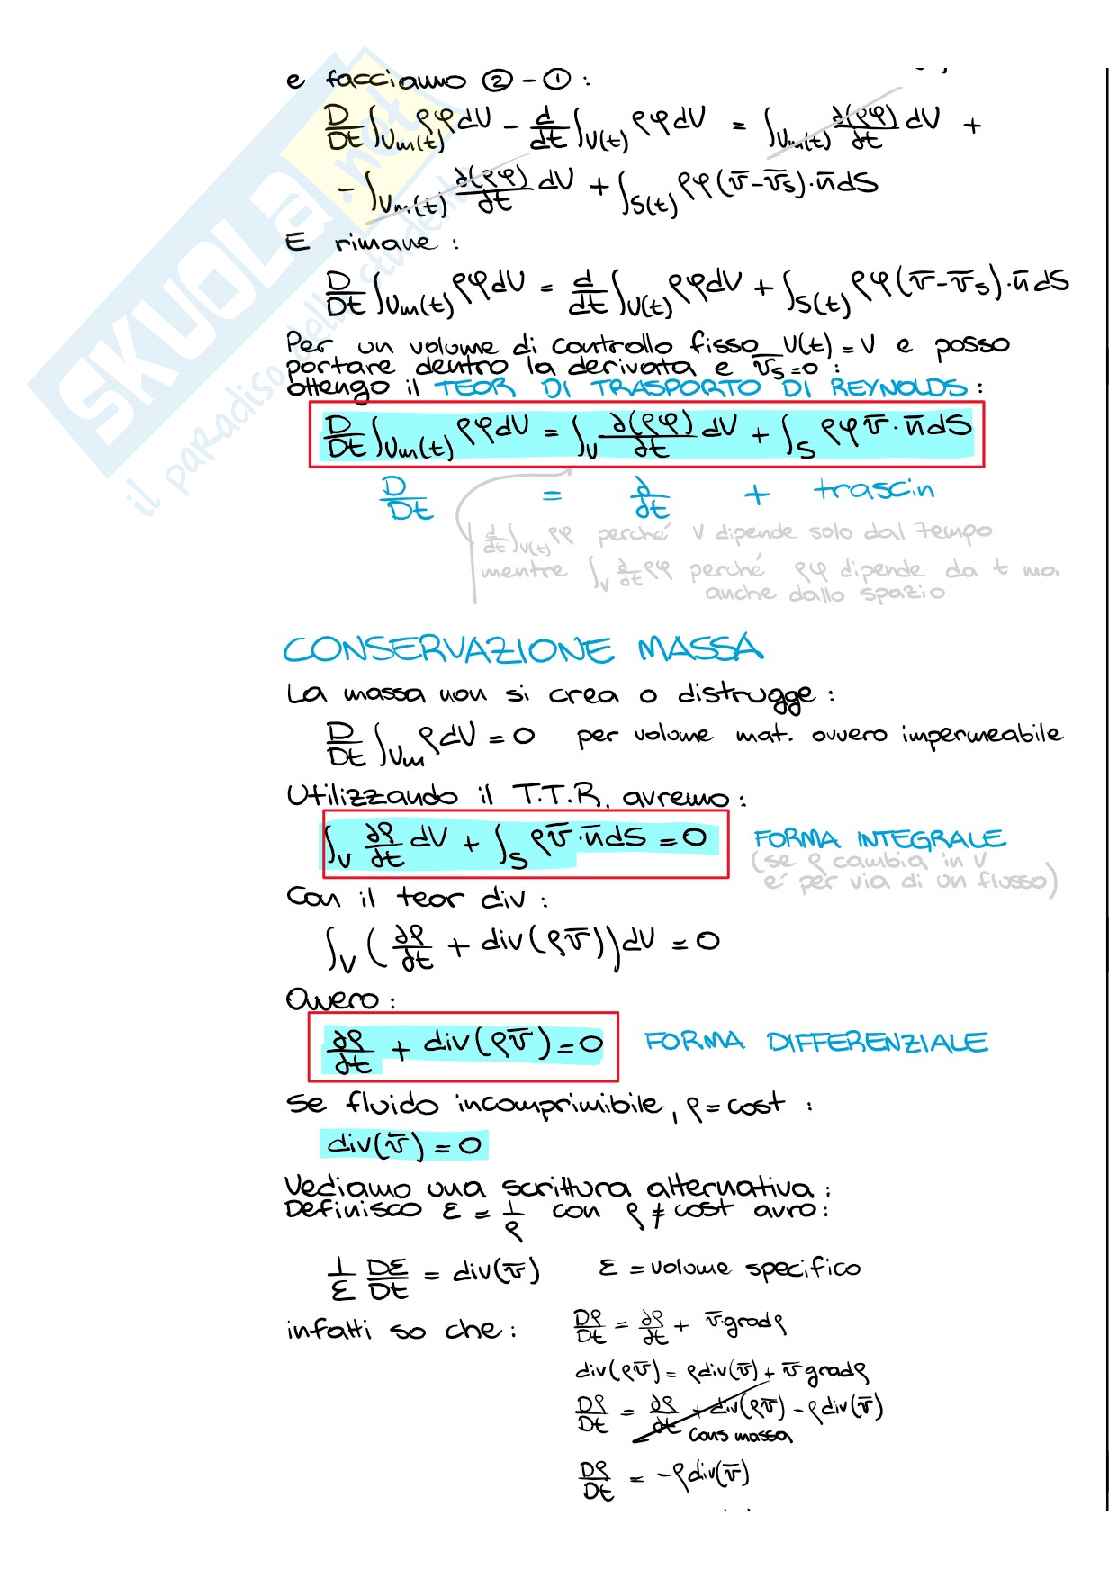 e facciamo ② - ① :
D/Dt ∫Vm(t) ρφdV - d/dt ∫V(t) ρφdV = ∫Vm(t) ∂(ρφ)/∂t dV +
- ∫Vm(t) ∂(ρφ)/∂t dV + ∫S(t) ρφ(v̅-v̅s)·n̅dS
E rimane :
D/Dt ∫Vm(t) ρφdV = d/dt ∫V(t) ρφdV + ∫S(t) ρφ(v̅-v̅s)·n̅dS
Per un volume di controllo fisso V(t)=V e posso
portare dentro la derivata e v̅s=0 :
ottengo il TEOR DI TRASPORTO DI REYNOLDS :
D/Dt ∫Vm(t) ρφdV = ∫V ∂(ρφ)/∂t dV + ∫S ρφv̅·n̅dS
D/Dt = ∂/∂t + trascin
d/dt ∫V(t) ρφ perché V dipende solo dal tempo
mentre ∫V ∂/∂t ρφ perché ρφ dipende da t ma
anche dallo spazio
CONSERVAZIONE MASSA
La massa non si crea o distrugge :
D/Dt ∫Vm ρdV = 0 per volume mat. ovvero impermeabile
Utilizzando il T.T.R. avremo :
∫V ∂ρ/∂t dV + ∫S ρv̅·n̅dS = 0 FORMA INTEGRALE
(se ρ cambia in V
e' per via di un flusso)
Con il teor div :
∫V (∂ρ/∂t + div(ρv̅))dV = 0
Ovvero :
∂ρ/∂t + div(ρv̅) = 0 FORMA DIFFERENZIALE
Se fluido incomprimibile, ρ=cost :
div(v̅) = 0
Vediamo una scrittura alternativa :
Definisco ε = 1/ρ con ρ ≠ cost avro :
1/ε Dε/Dt = div(v̅) ε = volume specifico
infatti so che : Dρ/Dt = ∂ρ/∂t + v̅·gradρ
div(ρv̅) = ρdiv(v̅) + v̅ gradρ
Dρ/Dt = ∂ρ/∂t + div(ρv̅) - ρdiv(v̅)
cons massa
Dρ/Dt = -ρdiv(v̅)
SKUOLA.net
il paradiso dello studente